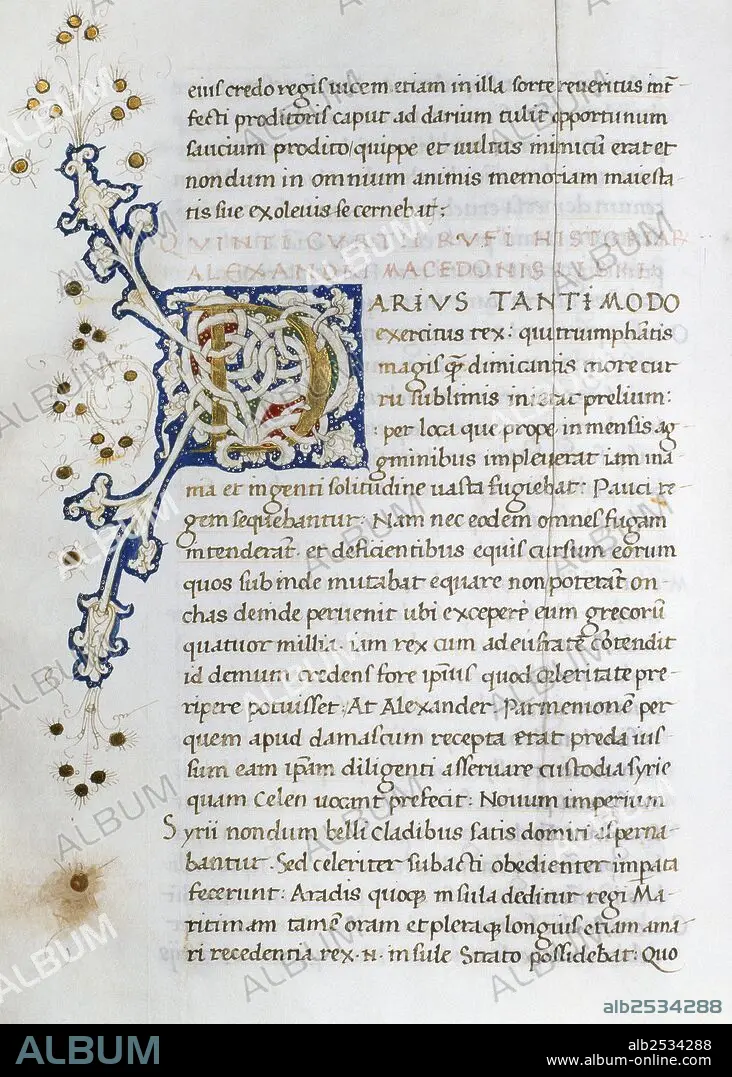 eius credo regis uicem etiam in illa sorte reueritus int̄
fecti proditoris caput ad darium tulit opportunum
saucium prodito/quippe et uultus inimicū erat et
nondum in omnium animis memoriam maiesta
tis sue exoleuisse cernebat̄:
QVINTI CVRTII RVFI HISTORIAR
ALEXANDRI MACEDONIS
DARIVS TANTI MODO
exercitus rex: qui triumphātis
magis q̄ dimicantis more cur
ru sublimis inierat prelium:
: per loca que prope inmensis ag
gminibus impleuerat iam ina
nia et ingenti solitudine uasta fugiebat: Pauci re
gem sequebantur. Nam nec eodem omnes fugam
intenderāt. et deficientibus equis cursum eorum
quos subinde mutabat equare non poterāt on
chas deinde peruenit ubi excepere eum grecorū
quatuor millia. iam rex cum ad eufratē cōtendit
id demum credens fore ip̄ius quod celeritate pre
ripere potuisset: At Alexander Parmenionē per
quem apud damascum recepta erat preda ius
sum eam ip̄am diligenti asseruare custodia syrie
quam Celen uocant prefecit: Nouum imperium
Syrii nondum belli cladibus satis domiti asperna
bantur. Sed celeriter subacti obedienter imp̄ata
fecerunt: Aradis quoq; insula deditur regi Ma
ritimam tamē oram et pleraq; longius etiam a ma
ri recedentia rex .N. insule Strato possidebat: Quo
alb2534288
ALBUM
alb2534288
www.album-online.com